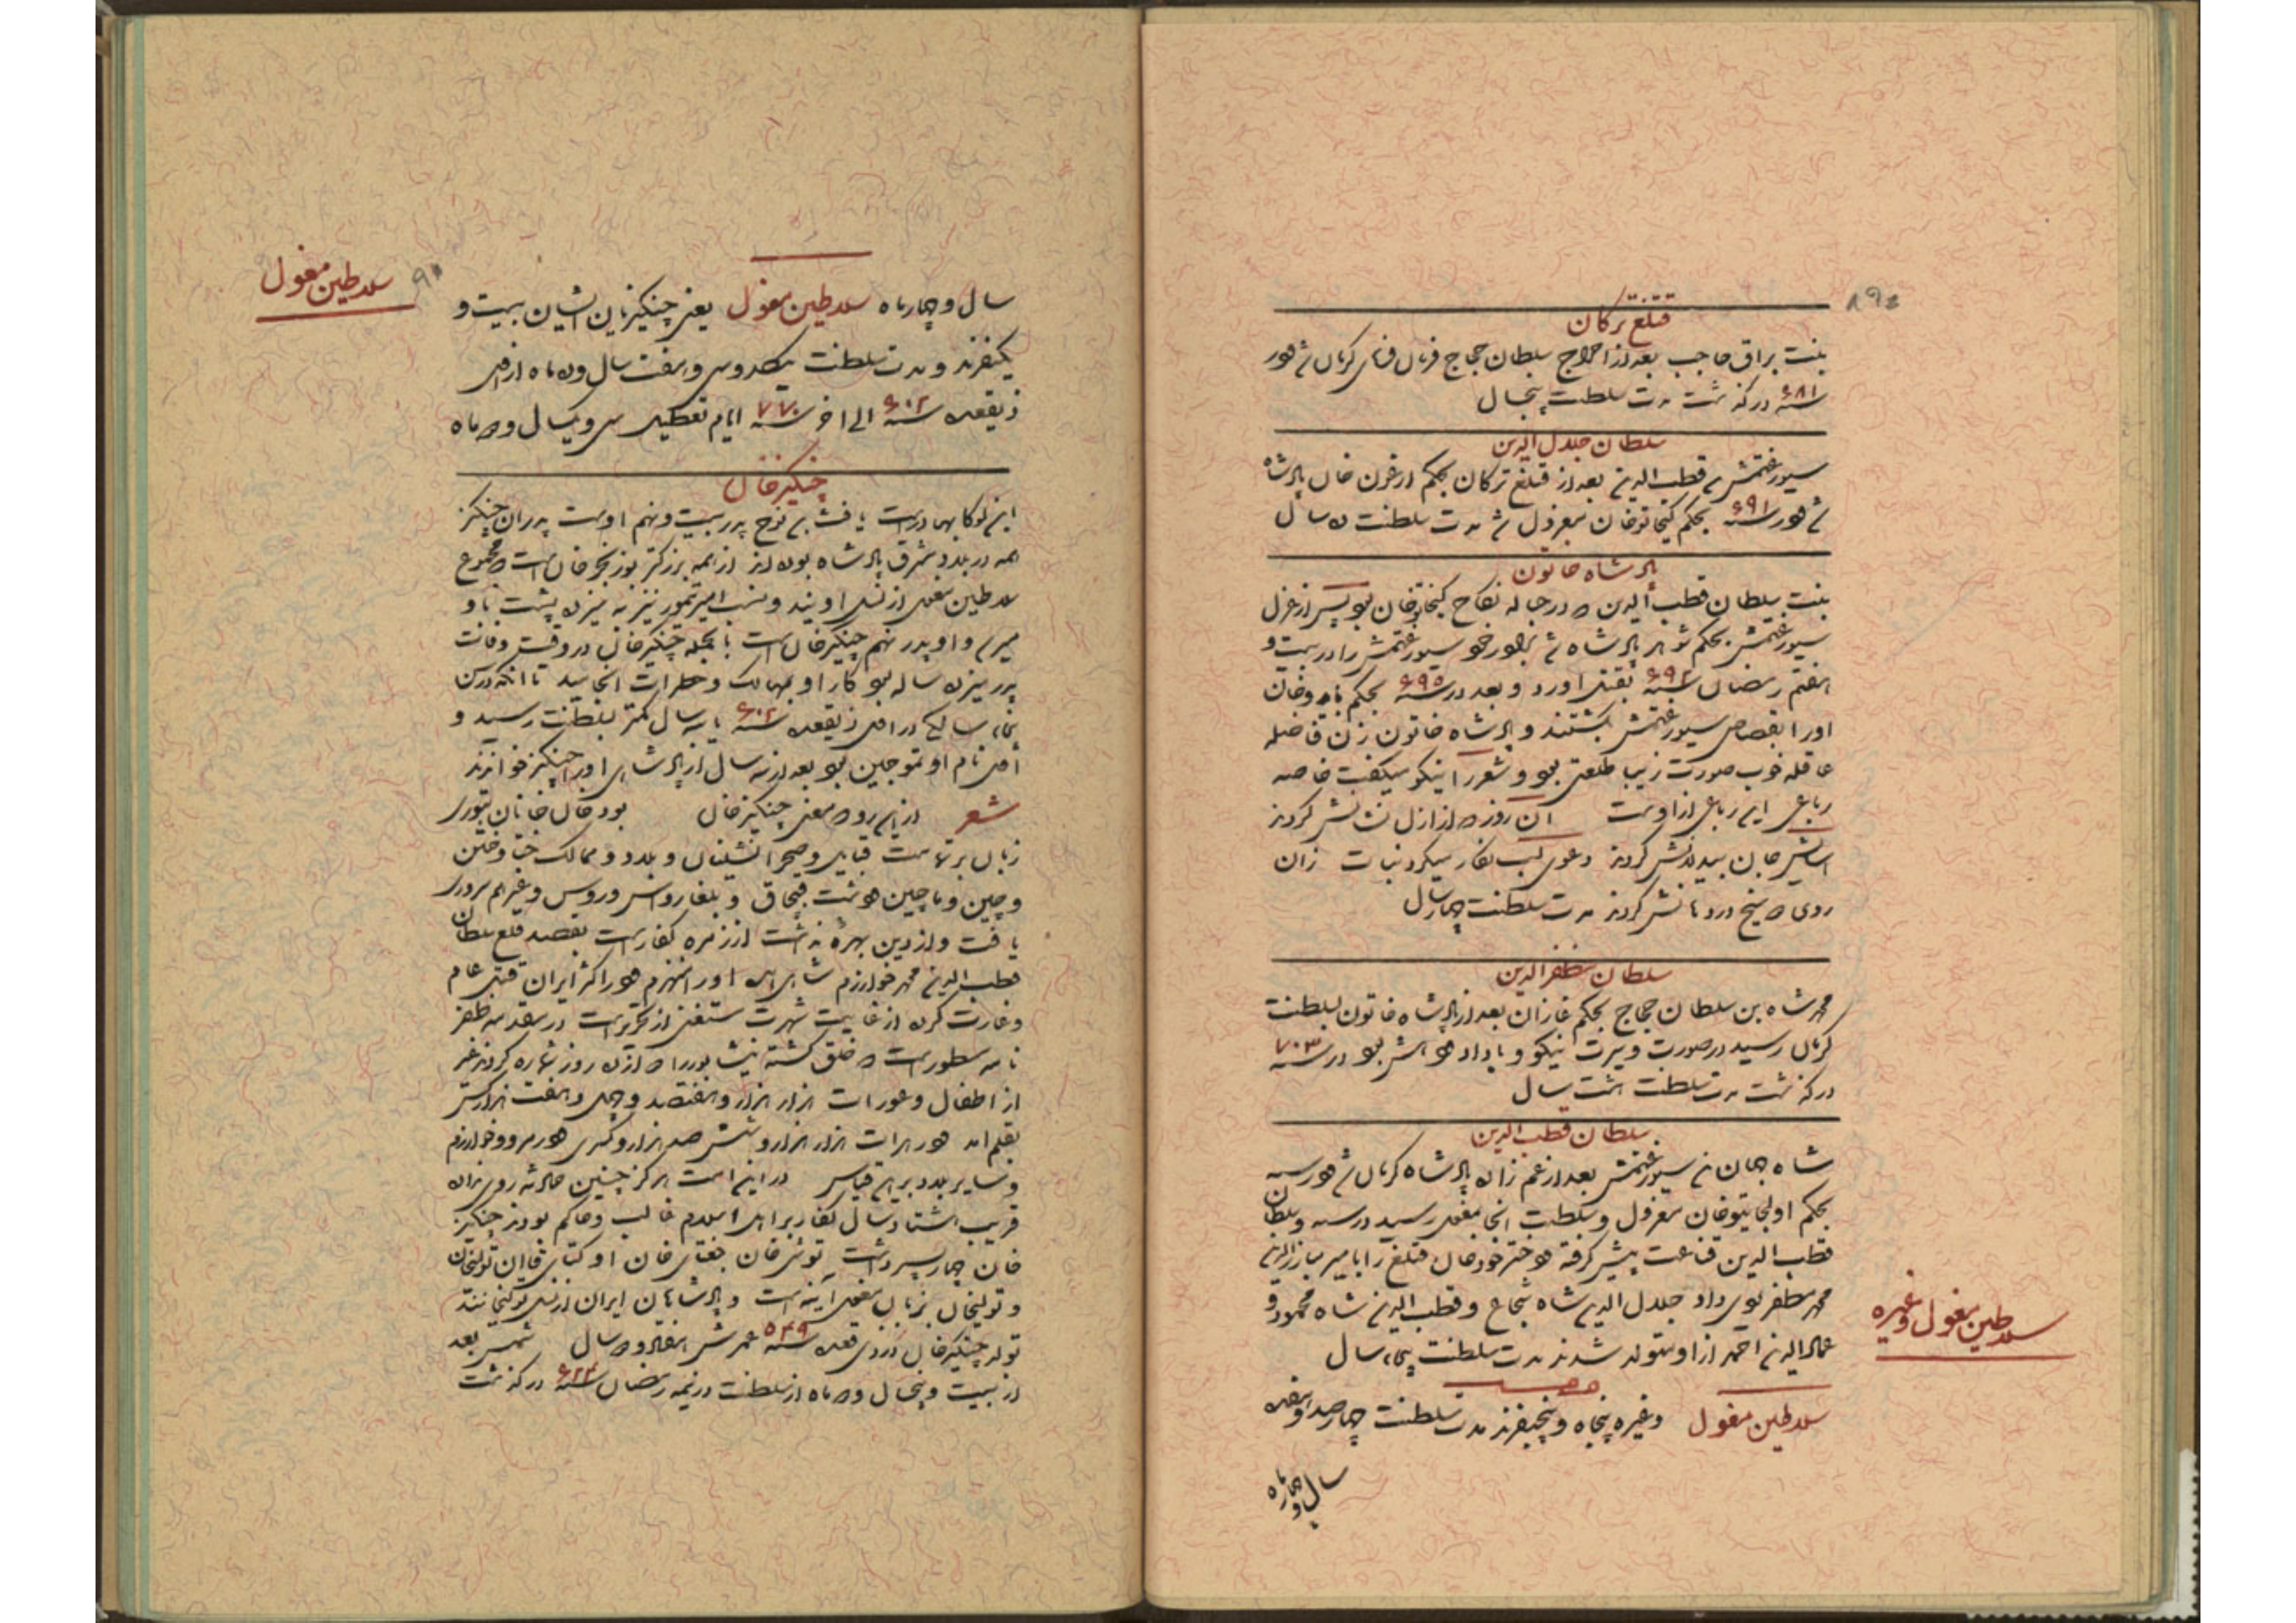 قتلغ ترکان
بنت براق حاجب بعد از اخراج سلطان حجاج فرمان فرمای کرمان شد و در
سنه ۶۸۱ درگذشت مدت سلطنت پنجسال
سلطان جلال الدین
سیورغتمش بن قطب الدین بعد از قتلغ ترکان بحکم ارغون خان پادشاه
شد و در سنه ۶۹۱ بحکم کیخاتو خان معزول شد مدت سلطنت ده سال
پادشاه خاتون
بنت سلطان قطب الدین که در حباله نکاح کیخاتو خان بود پس از عزل
سیورغتمش بحکم شوهر پادشاه شد برادر خود سیورغتمش را در بیست و
هفتم رمضان سنه ۶۹۲ بقتل اورد و بعد در سنه ۶۹۵ بحکم بایدو خان
او را بقصاص سیورغتمش بکشتند و پادشاه خاتون زن فاضله
عاقله خوب صورت زیبا طلعتی بود و شعر را نیکو میگفت خاصه
رباعی این رباعی از اوست ان روز که از ازل نشانش کردند
اسایش جان بیدلانش کردند دعوی لب نگار میکرد نبات زان
روی که میخ در دهانش کردند مدت سلطنت چهار سال
سلطان مظفر الدین
محمد شاه بن سلطان حجاج بحکم غازان بعد از پادشاه خاتون بسلطنت
کرمان رسید در صورت و سیرت نیکو و با داد و دهش بود در سنه ۷۰۳
درگذشت مدت سلطنت هشت سال
سلطان قطب الدین
شاه جهان بن سیورغتمش بعد از عم زاده پادشاه کرمان شد و در سنه
بحکم اولجایتو خان معزول و سلطنت انجا بمغول رسید در سنه و سلطان
قطب الدین قناعت پیش گرفته دختر خود خان قتلغ را بامیر مبارزالدین
محمد مظفر بوی داد جلال الدین شاه شجاع و قطب الدین شاه محمود و
عماد الدین احمد از او متولد شدند مدت سلطنت پنجاه سال
سلاطین مغول وغیره پنجاه و پنجنفرند مدت سلطنت چهارصد و هفده
سال و چهارماه
سلاطین مغول وغیره
سلاطین مغول
سال و چهارماه سلاطین مغول یعنی چنکیزیان ایشان بیست و
یکنفرند و مدت سلطنت یکصد و سی و هفت سال و ده ماه از اول
ذیقعده سنه ۶۰۲ الی اخر سنه ۷۷۰ ایام تعطیل سی و یکسال و ده ماه
چنکیز خان
ابن یسوکا بهادر است یافث بن نوح پدر بیست و نهم اوست پدران چنکیز
همه در بلاد مشرق پادشاه بوده اند از همه بزرکتر بوزنجر خان است که مجموع
سلاطین مغول از نسل اویند و نسب امیر تیمور نیز به سیزده پشت باو
میرسد و او پدر نهم چنکیز خان است بالجمله چنکیز خان در وقت وفات
پدر سیزده ساله بود کار او بمهالک و خطرات انجامید تا انکه در سن
پنجاه سالکی در اول ذیقعده سنه ۶۰۲ یا سه سال کمتر بسلطنت رسید و
اول نام او تموجین بود بعد از سه سال از پادشاهی او را چنکیز خواندند
شعر از این رو که معنی چنکیز خان بود خان خانان بتوری
زبان برتهامت قبایل و صحرا نشینان و بلاد و ممالک ختا و ختن
و چین و ماچین و دشت قبچاق و بلغار و اس و روس وغیرهم سروری
یافت و از دین بهره نداشت از زمره کفار است بقصد قلع سلطان
قطب الدین محمد خوارزم شاهی آمد او را منهزم و در اکثر ایران قتل عام
و غارت کرده از غایت شهرت مستغنی از تحریر است در مقدمه ظفر
نامه مسطور است که خلق کشته نیشابور را دوازده روز شماره کردند غیر
از اطفال و عورات هزار هزار و هفتصد و چهل و هفت هزار کس
بقلم امد و در هرات هزار هزار و ششصد هزار و کسری و در مرو و خوارزم
و سایر بلاد برین قیاس در این امت هرکز چنین حادثه روی نداده
قریب هشتاد سال کفار بر اهل اسلام غالب و حاکم بودند چنکیز
خان چهار پسر داشت توشی خان جغتای خان اوکتای قاان تولیخان
و تولیخان بزبان مغول آینه است و پادشاهان ایران از نسل تولیخانند
تولد چنکیز خان در ذی قعده سنه ۵۴۹ عمرش هفتاد و سال شمسی بعد
از بیست و پنجسال و ماه از سلطنت در نیمه رمضان سنه ۶۲۴ درکذشت